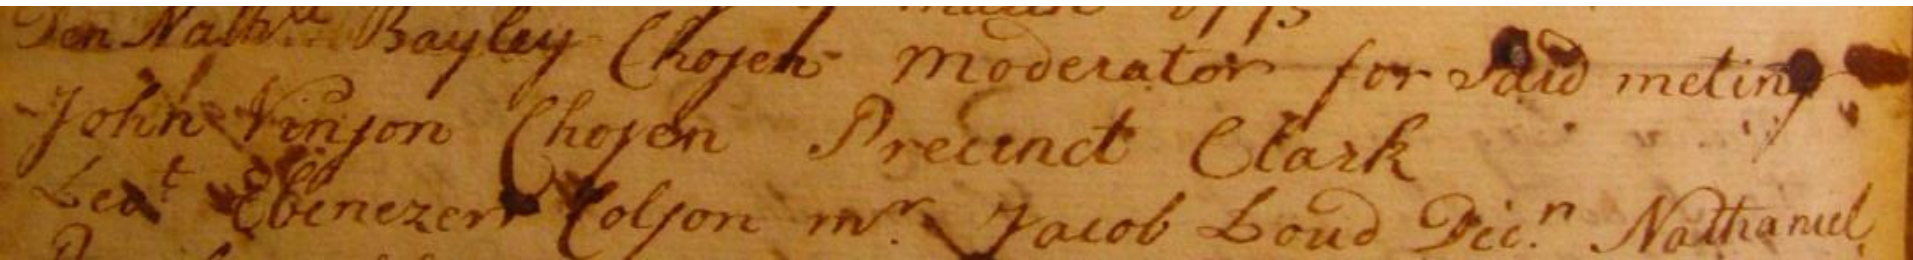 Den Nathll Bayley Chosen moderator for said meting
John Vinson Chosen Precinct Clark
Leat Ebenezer Colson mr. Jacob Loud Dic.n Nathaniel